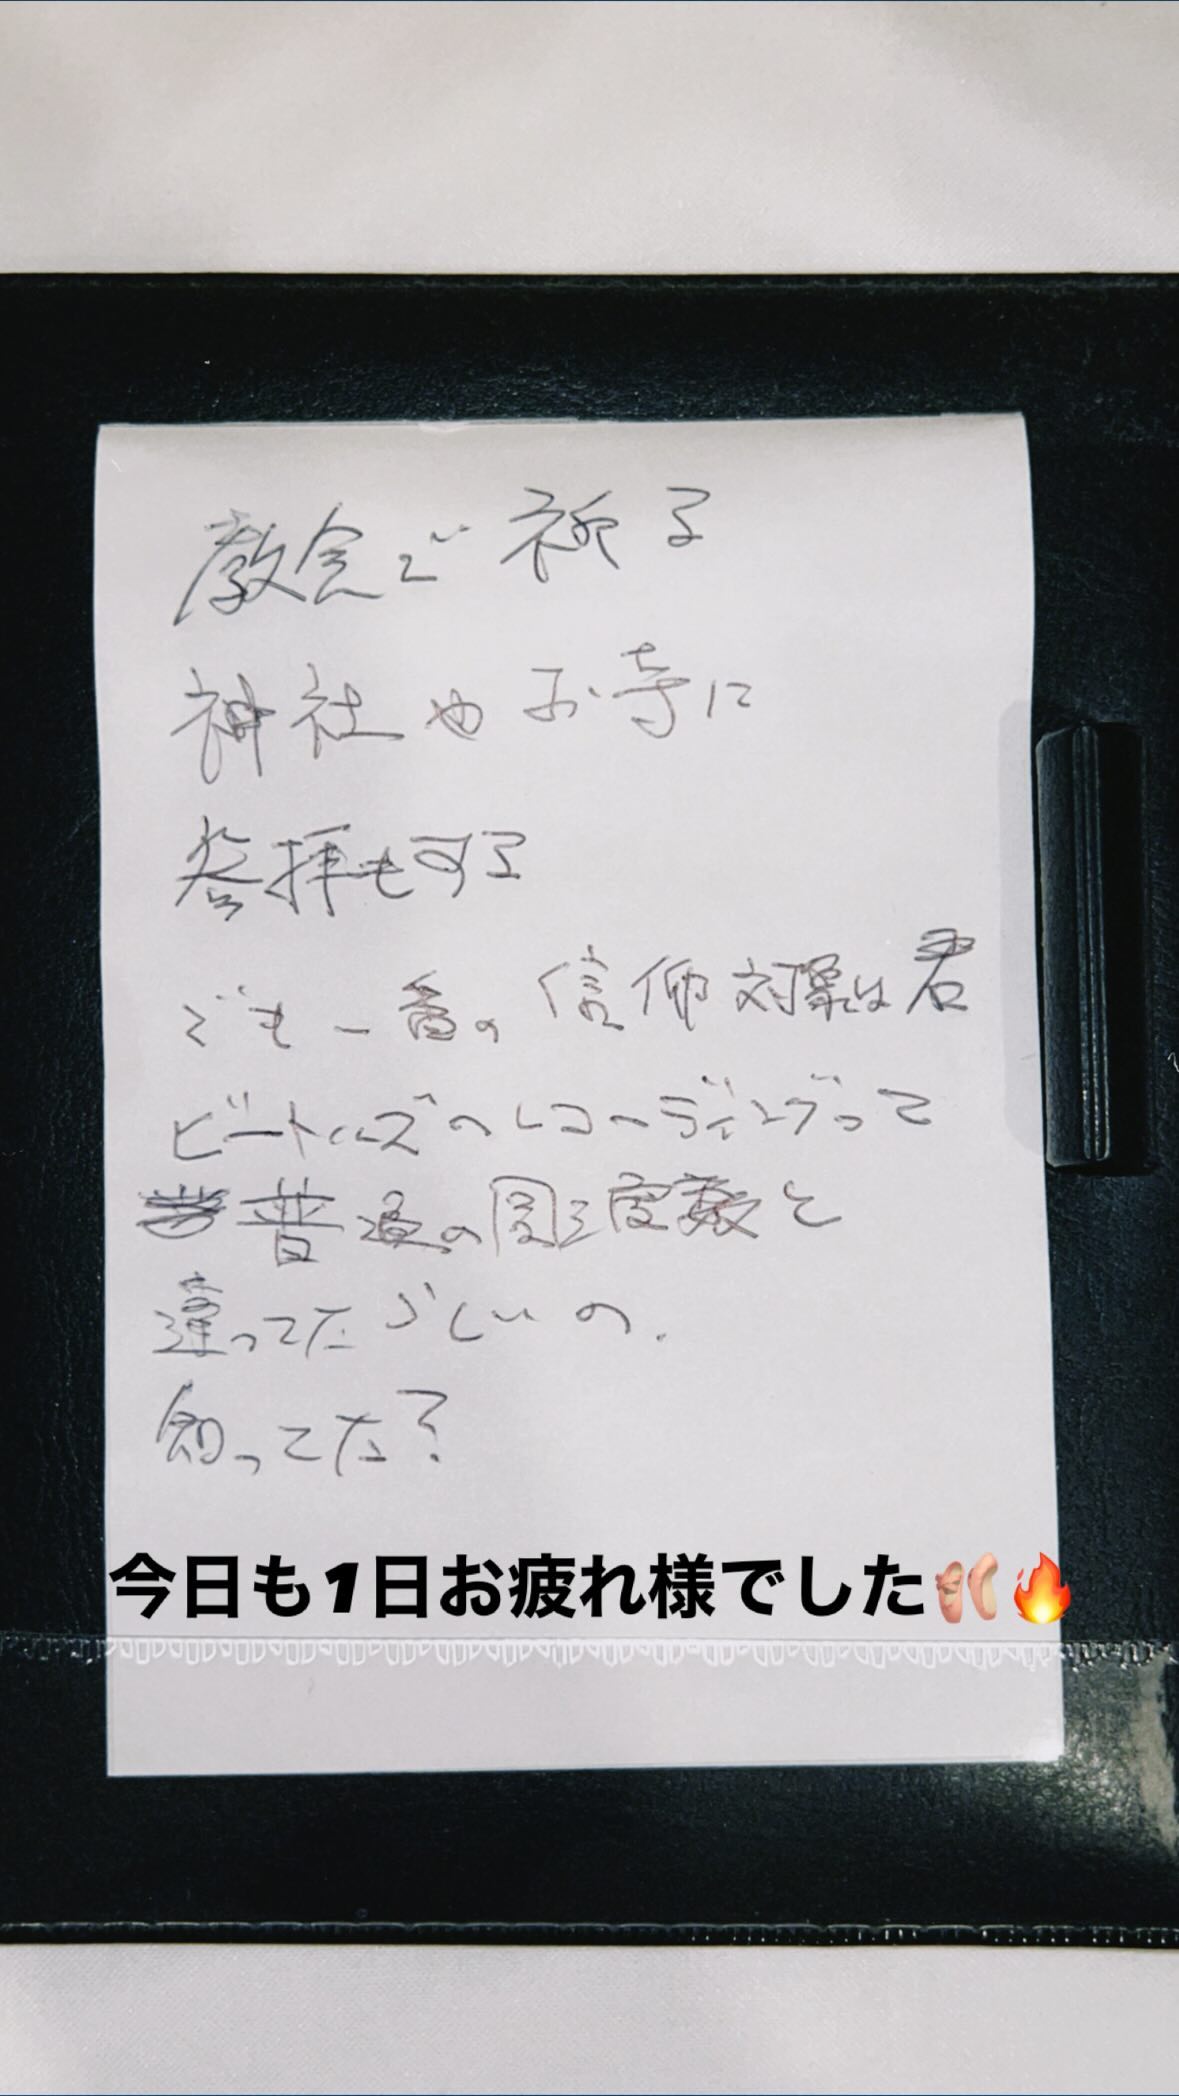 教会で祈る
神社やお寺に
参拝もする
でも一番の信仰対象は君
ビートルズのレコーディングって
普通の周波数と
違ってたらしいの.
知ってた?
今日も1日お疲れ様でした🩰🔥